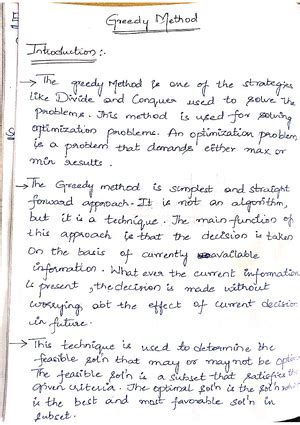 Greedy Method
Introduction :-
→ The greedy Method is one of the strategies
like Divide and Conquer used to solve the
problems. This method is used for solving
optimization problems. An optimization problem
is a problem that demands either max or
min results.
→ The Greedy method is simplest and straight
forward approach. It is not an algorithm,
but it is a technique. The main function of
this approach is that the decision is taken
On the basis of currently available
information. What ever the current information
is present, the decision is made without
worrying abt the effect of current decision
in future.
→ This technique is used to determine the
feasible sol'n that may or may not be
The feasible sol'n is a subset that satisfies the
given criteria. The optimal sol'n is the sol'n which
is the best and most favorable sol'n in
subset.